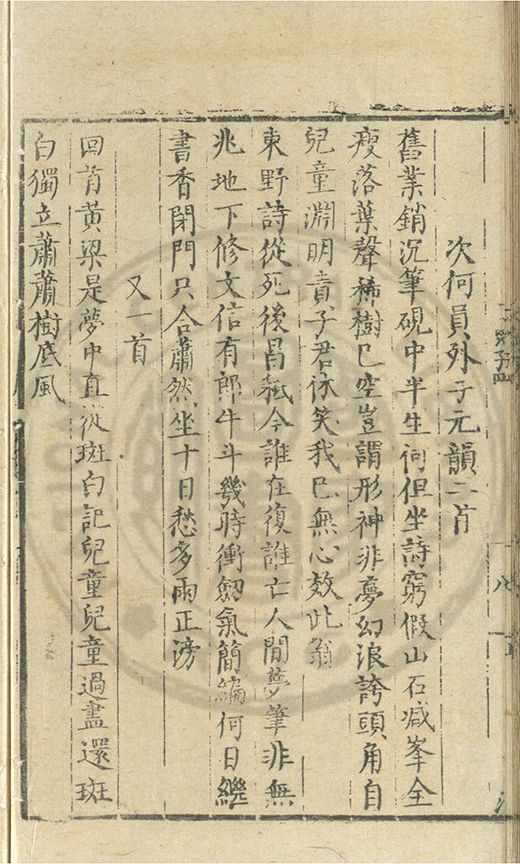 次何員外子元韻二首
舊業銷沉筆硯中半生何但坐詩窮假山石減峯全
瘦落葉聲稀樹已空豈謂形神非夢幻浪誇頭角自
兒童淵明責子君休笑我已無心效此翁
東野詩從死後昌秖今誰在復誰亡人間夢筆非無
兆地下修文信有郎牛斗幾時衝劒氣簡編何日繼
書香閉門只合蕭然坐十日愁多雨正滂
又一首
回首黃粱是夢中直從斑白記兒童兒童過盡還斑
白獨立蕭蕭樹底風